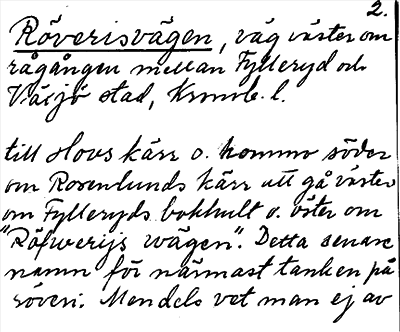 2.
Röverisvägen, väg väster om
rågången mellan Fylleryd och
Växjö stad, Kronob. l.
till Hovs kärr o. kommo söder
om Rosenlunds kärr att gå väster
om Fylleryds bokhult o. öster om
"Röfwerijs wägen". Detta senare
namn för närmast tanken på
röveri. Mendels vet man ej av